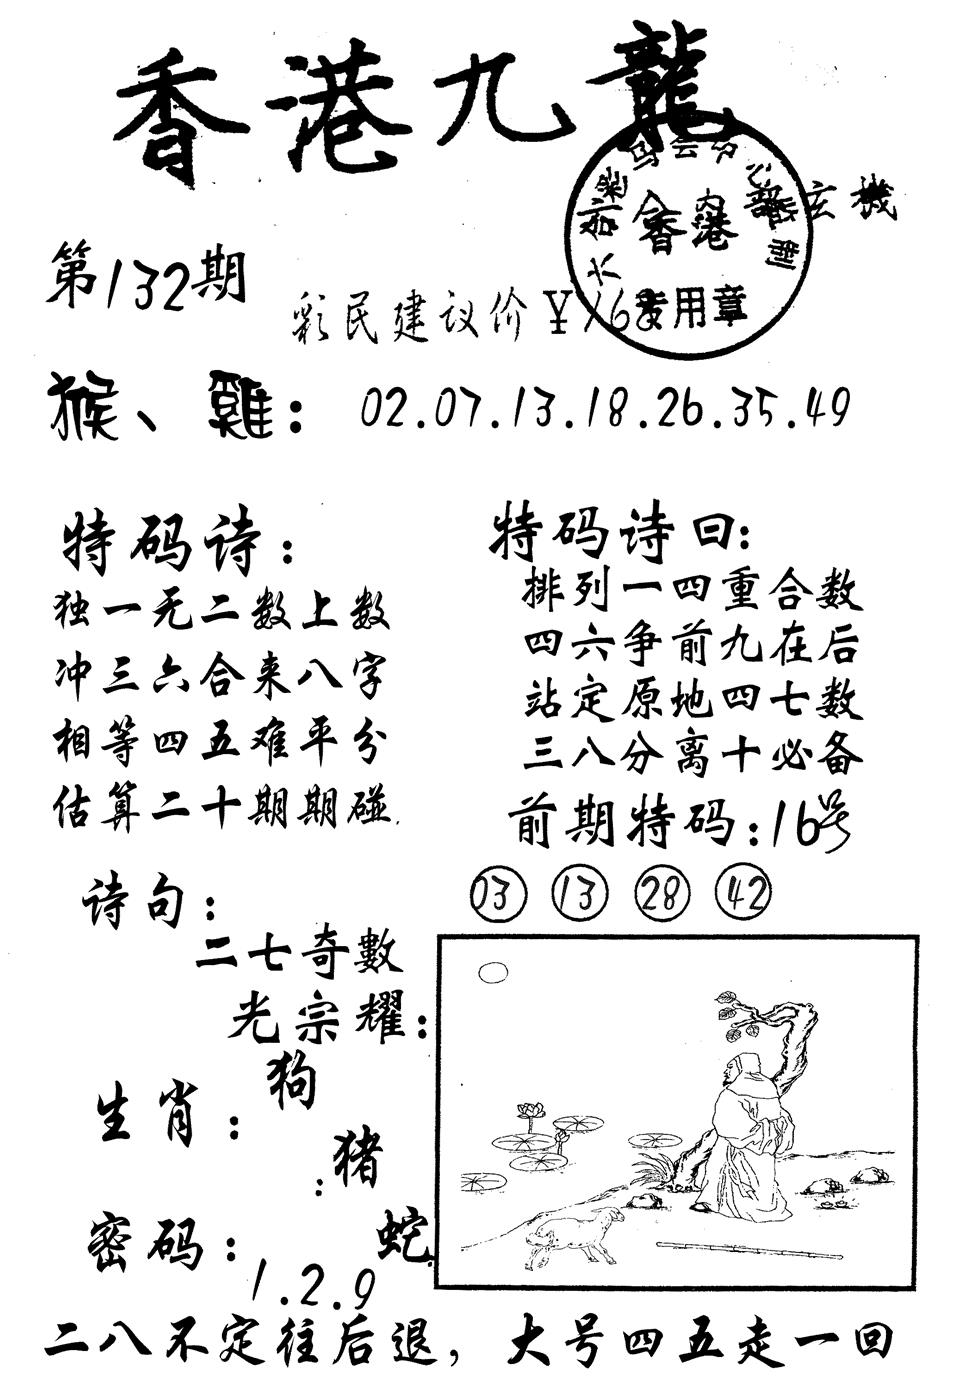 香港九龍
香港
专用章
玄機
第132期
彩民建议价¥168
猴、雞：02.07.13.18.26.35.49
特码诗：
独一无二数上数
冲三六合来八字
相等四五难平分
估算二十期期碰
特码诗曰：
排列一四重合数
四六争前九在后
站定原地四七数
三八分离十必备
前期特码：16号
03 13 28 42
诗句：
二七奇數
光宗耀：
生肖：
狗
：猪
蛇
密码：
1.2.9
二八不定往后退，大号四五走一回